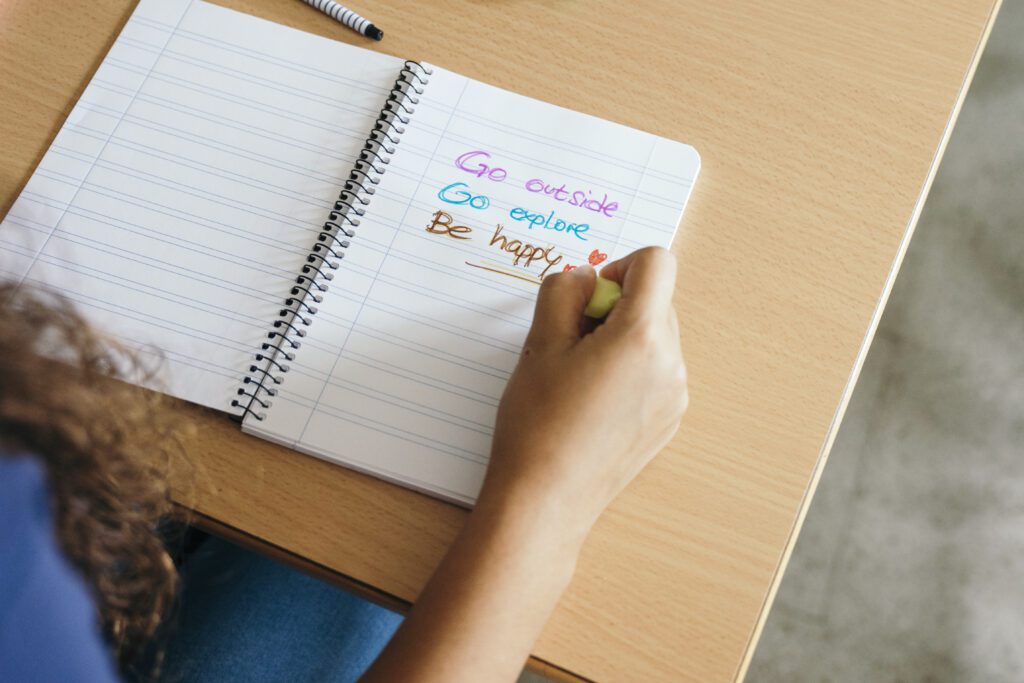 Go outside
Go explore
Be happy